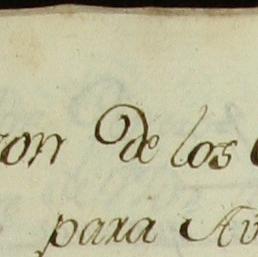 on De los
para Av